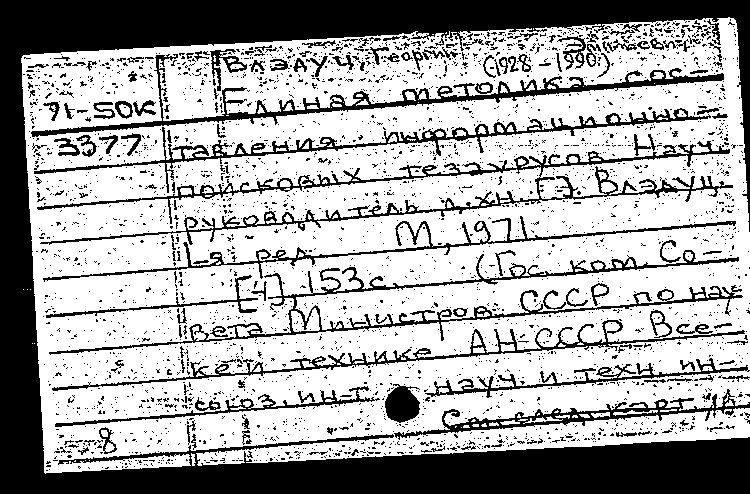 Влэдуч, Георгий Эмильевич
(1928-1990.)
91-50К Единая методика сос-
3377 тавления информационно-
поисковых тезаурусов. Науч.
руководитель д.х.н. Г.Э. Влэдуц.
1-я ред. М., 1971.
[4], 153с. (Гос. ком. Со-
вета Министров СССР по нау-
ке и технике АН СССР. Все-
союз. ин-т науч. и техн. ин-
8 См. след. карт.